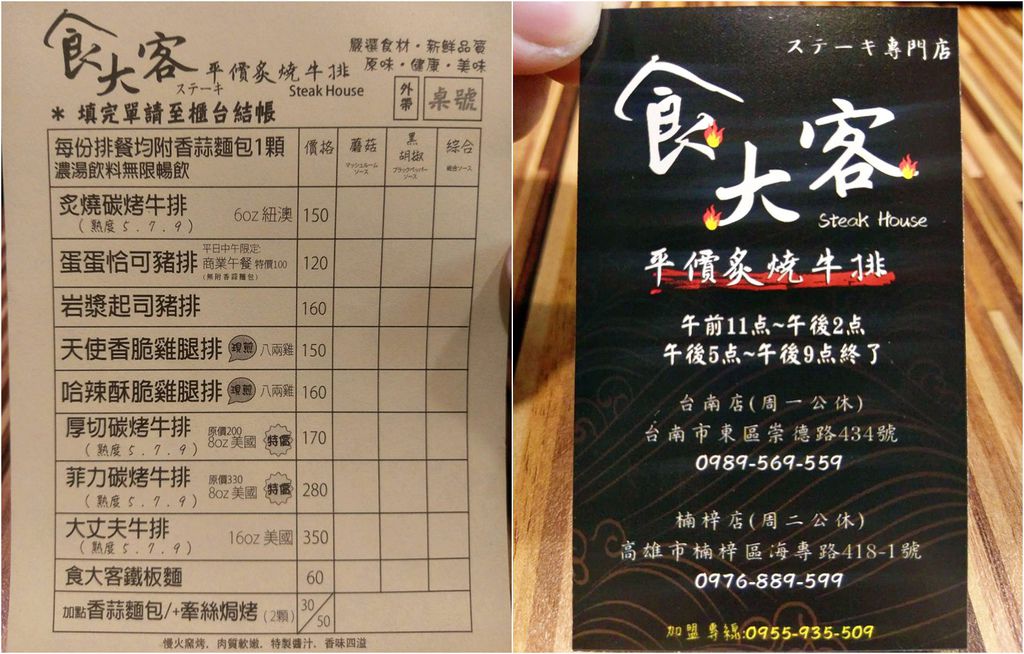 食大客
ステーキ
平價炙燒牛排
Steak House
嚴選食材・新鮮品質
原味・健康・美味
外帶
桌號
* 填完單請至櫃台結帳
每份排餐均附香蒜麵包1顆
濃湯飲料無限暢飲
價格
蘑菇
マッシュルームソース
黑胡椒
ブラックペッパーソース
綜合
総合ソース
炙燒碳烤牛排 6oz 紐澳 150
(熟度 5.7.9)
蛋蛋恰可豬排 平日中午限定: 商業午餐 特價100 (無附香蒜麵包) 120
岩漿起司豬排 160
天使香脆雞腿排 現煎 八兩雞 150
哈辣酥脆雞腿排 現煎 八兩雞 160
厚切碳烤牛排 原價200 8oz 美國 特價 170
(熟度 5.7.9)
菲力碳烤牛排 原價330 8oz 美國 特價 280
(熟度 5.7.9)
大丈夫牛排 16oz 美國 350
(熟度 5.7.9)
食大客鐵板麵 60
加點香蒜麵包/+牽絲焗烤(2顆) 30/50
慢火窯烤, 肉質軟嫩, 特製醬汁, 香味四溢
ステーキ専門店
食大客
Steak House
平價炙燒牛排
午前11点~午後2点
午後5点~午後9点終了
台南店(周一公休)
台南市東區崇德路434號
0989-569-559
楠梓店(周二公休)
高雄市楠梓區海專路418-1號
0976-889-599
加盟專線:0955-935-509